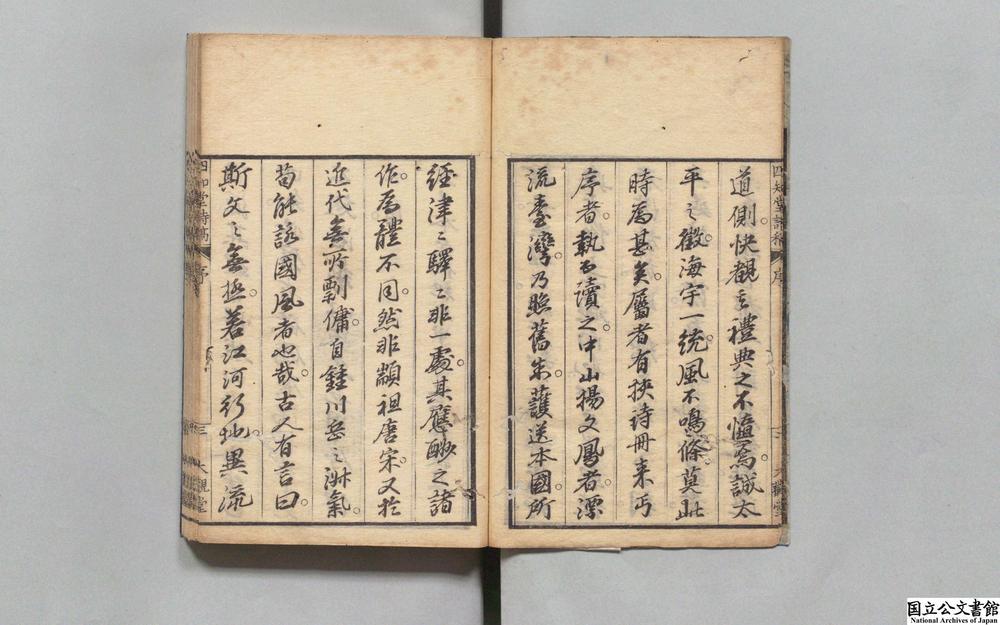 四知堂詩稿 序
道側快覩之禮典之不愆焉誠太
平之徵海宇一統風不鳴條莫此
時為甚矣屬者有挾詩冊来丐
序者執而讀之中山揚文鳳者漂
流臺灣乃照舊朱護送本國所
經津〻驛〻非一處其應酬之諸
作為體不同然非顓祖唐宋又於
近代無所剽傭自鍾川岳之淋氣
苟能詠國風者也哉古人有言曰
斯文之無極若江河行地異流
四知堂詩稿 序 三 大觀堂
国立公文書館
National Archives of Japan